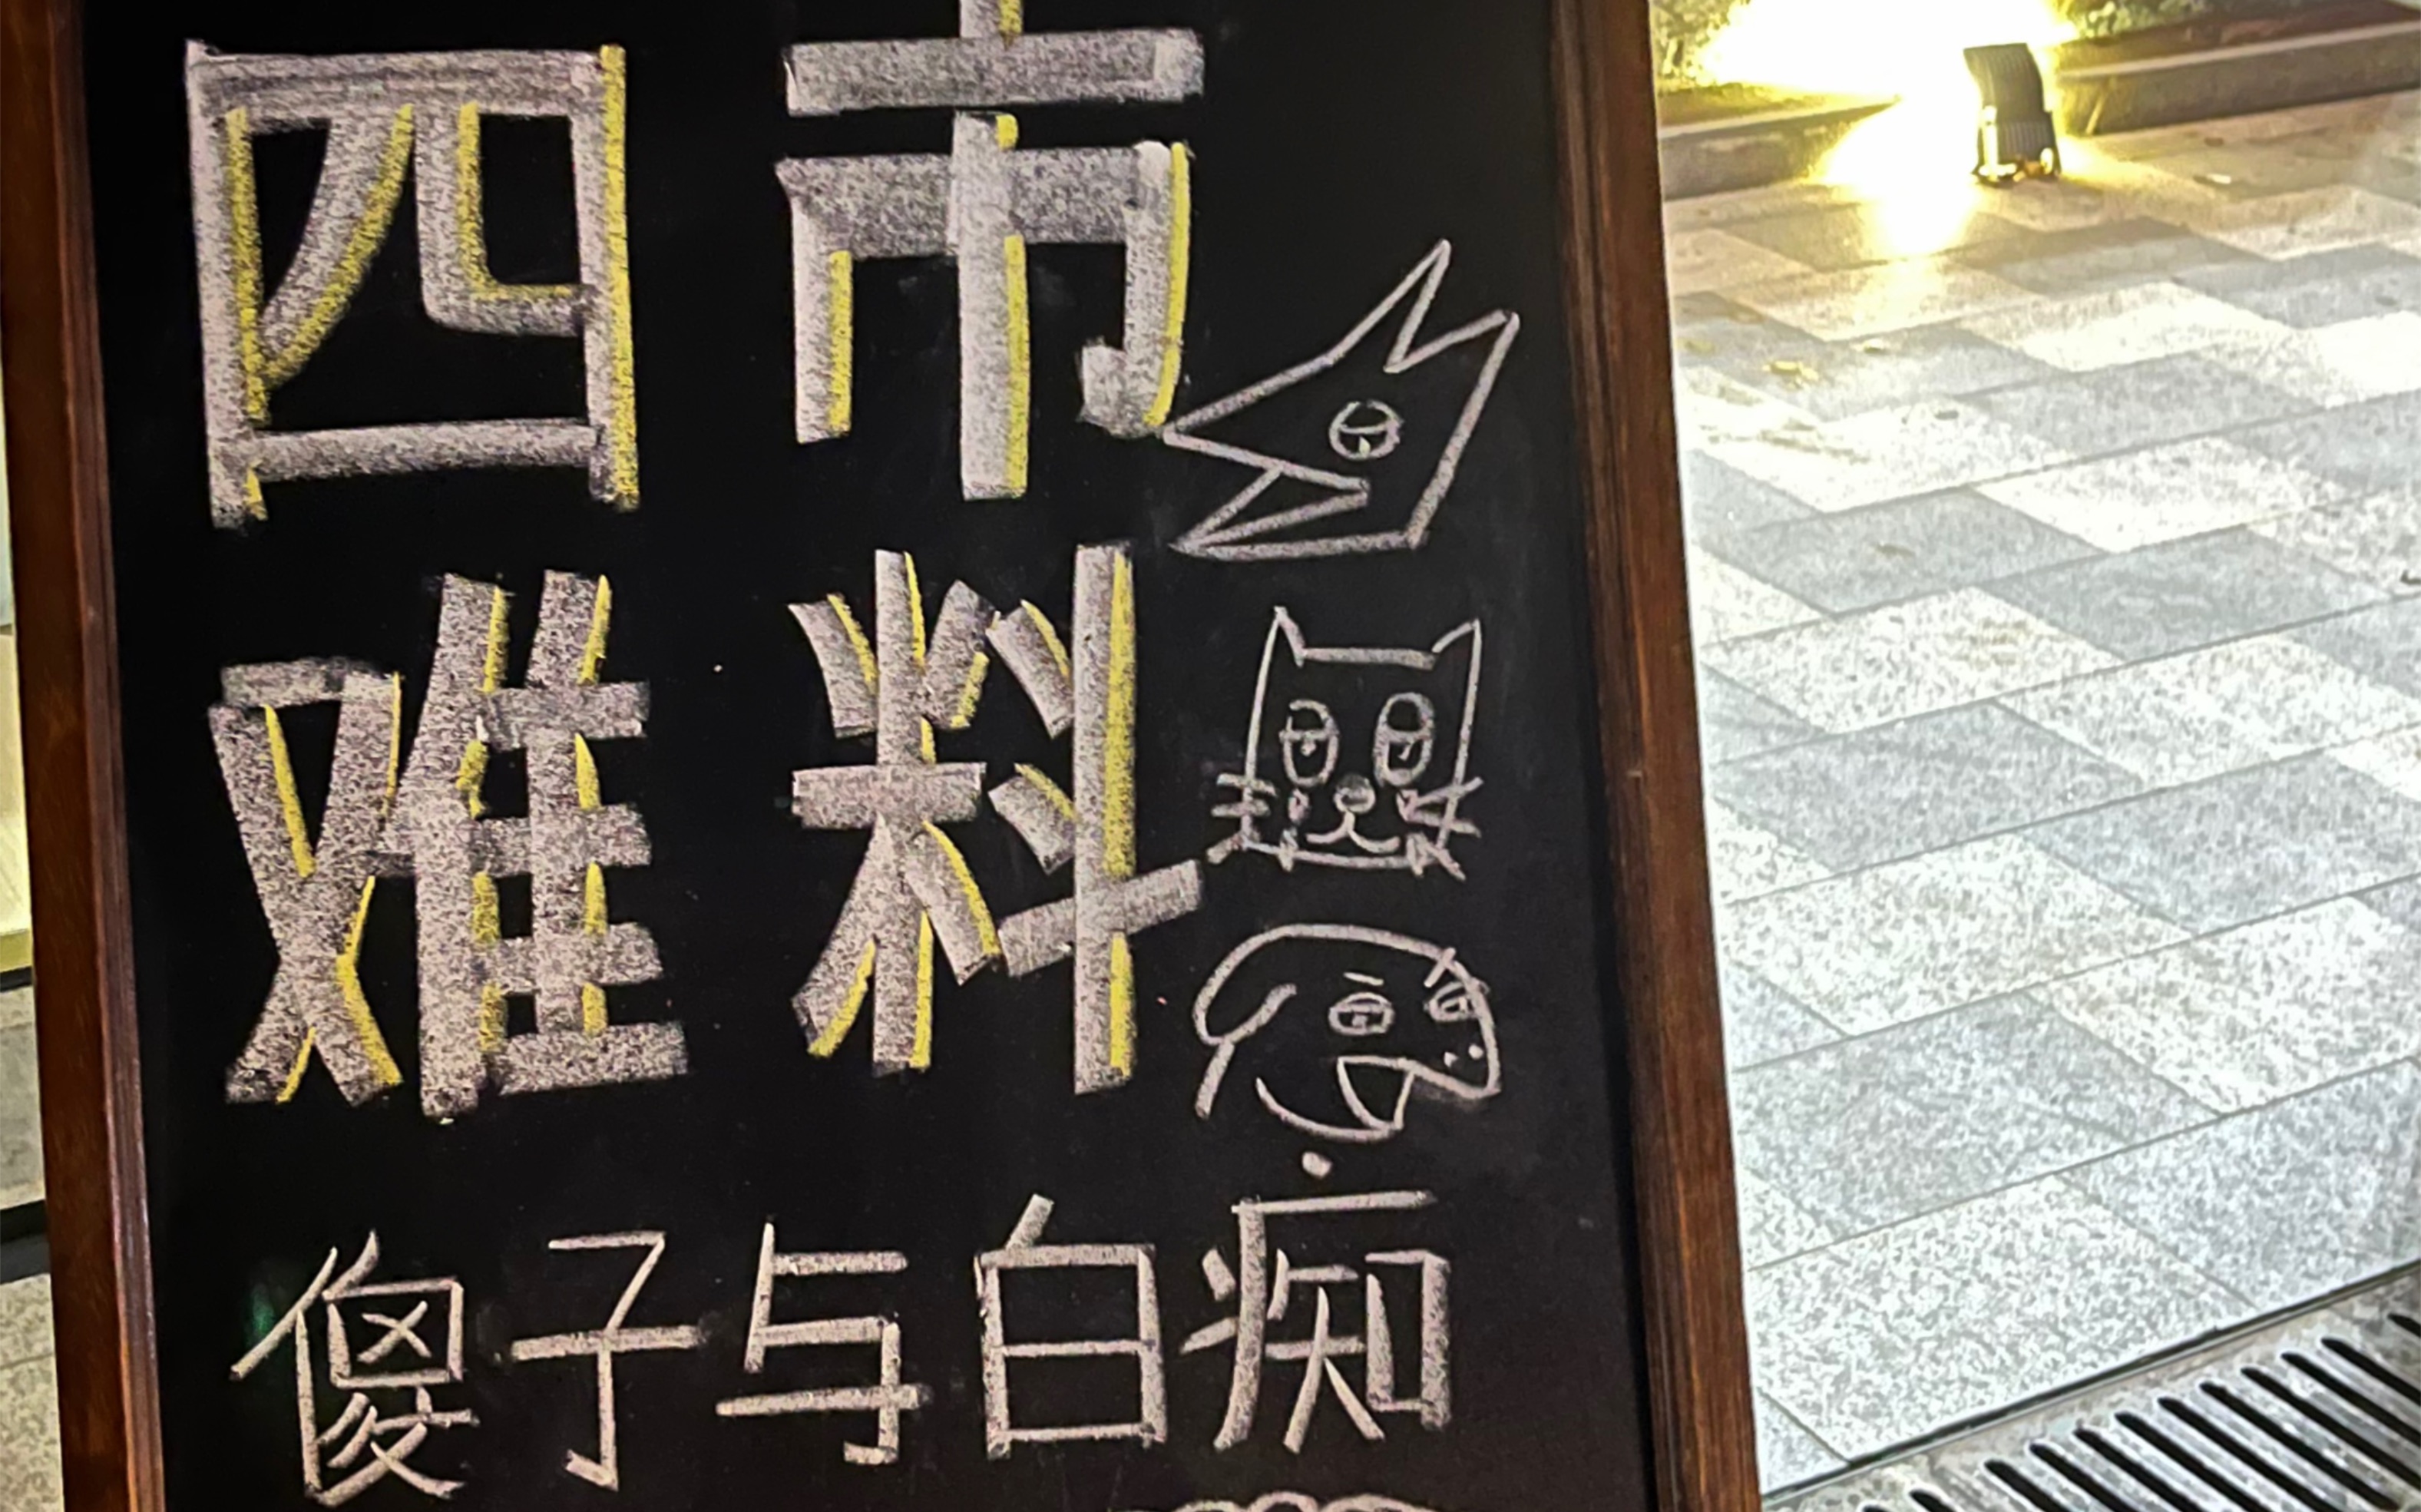 四市
难料
傻子与白痴